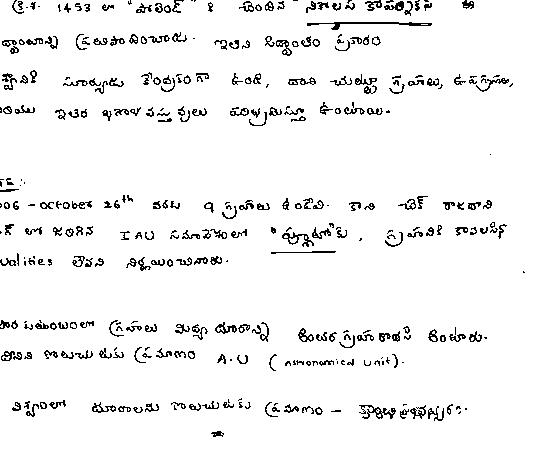 క్రీ.శ. 1453 లో "పోలెండ్" కి చెందిన నికోలస్ కోపర్నికస్ ఈ
ప్రతిపాదించారు. ఇతని సిద్ధాంతం ప్రకారం
సూర్యుడు కేంద్రకంగా ఉండి, దాని చుట్టూ గ్రహాలు, ఉపగ్రహాలు,
ఇతర ఖగోళ వస్తువులు పరిభ్రమిస్తూ ఉంటాయి.
006 - October 26th వరకు 9 గ్రహాలు ఉండేవి. కాని చెక్ రాజధాని
లో జరిగిన IAU సమావేశంలో "ప్లూటో"కు, గ్రహానికి కావలసిన
ualities లేవని నిర్ణయించినారు.
గ్రహాల మధ్య దూరాన్ని అంతర గ్రహ రాశి అంటారు.
కొలుచుటకు ప్రమాణం A.U (Astronomical Unit).
విశ్వంలో దూరాలను కొలుచుటకు ప్రమాణం -